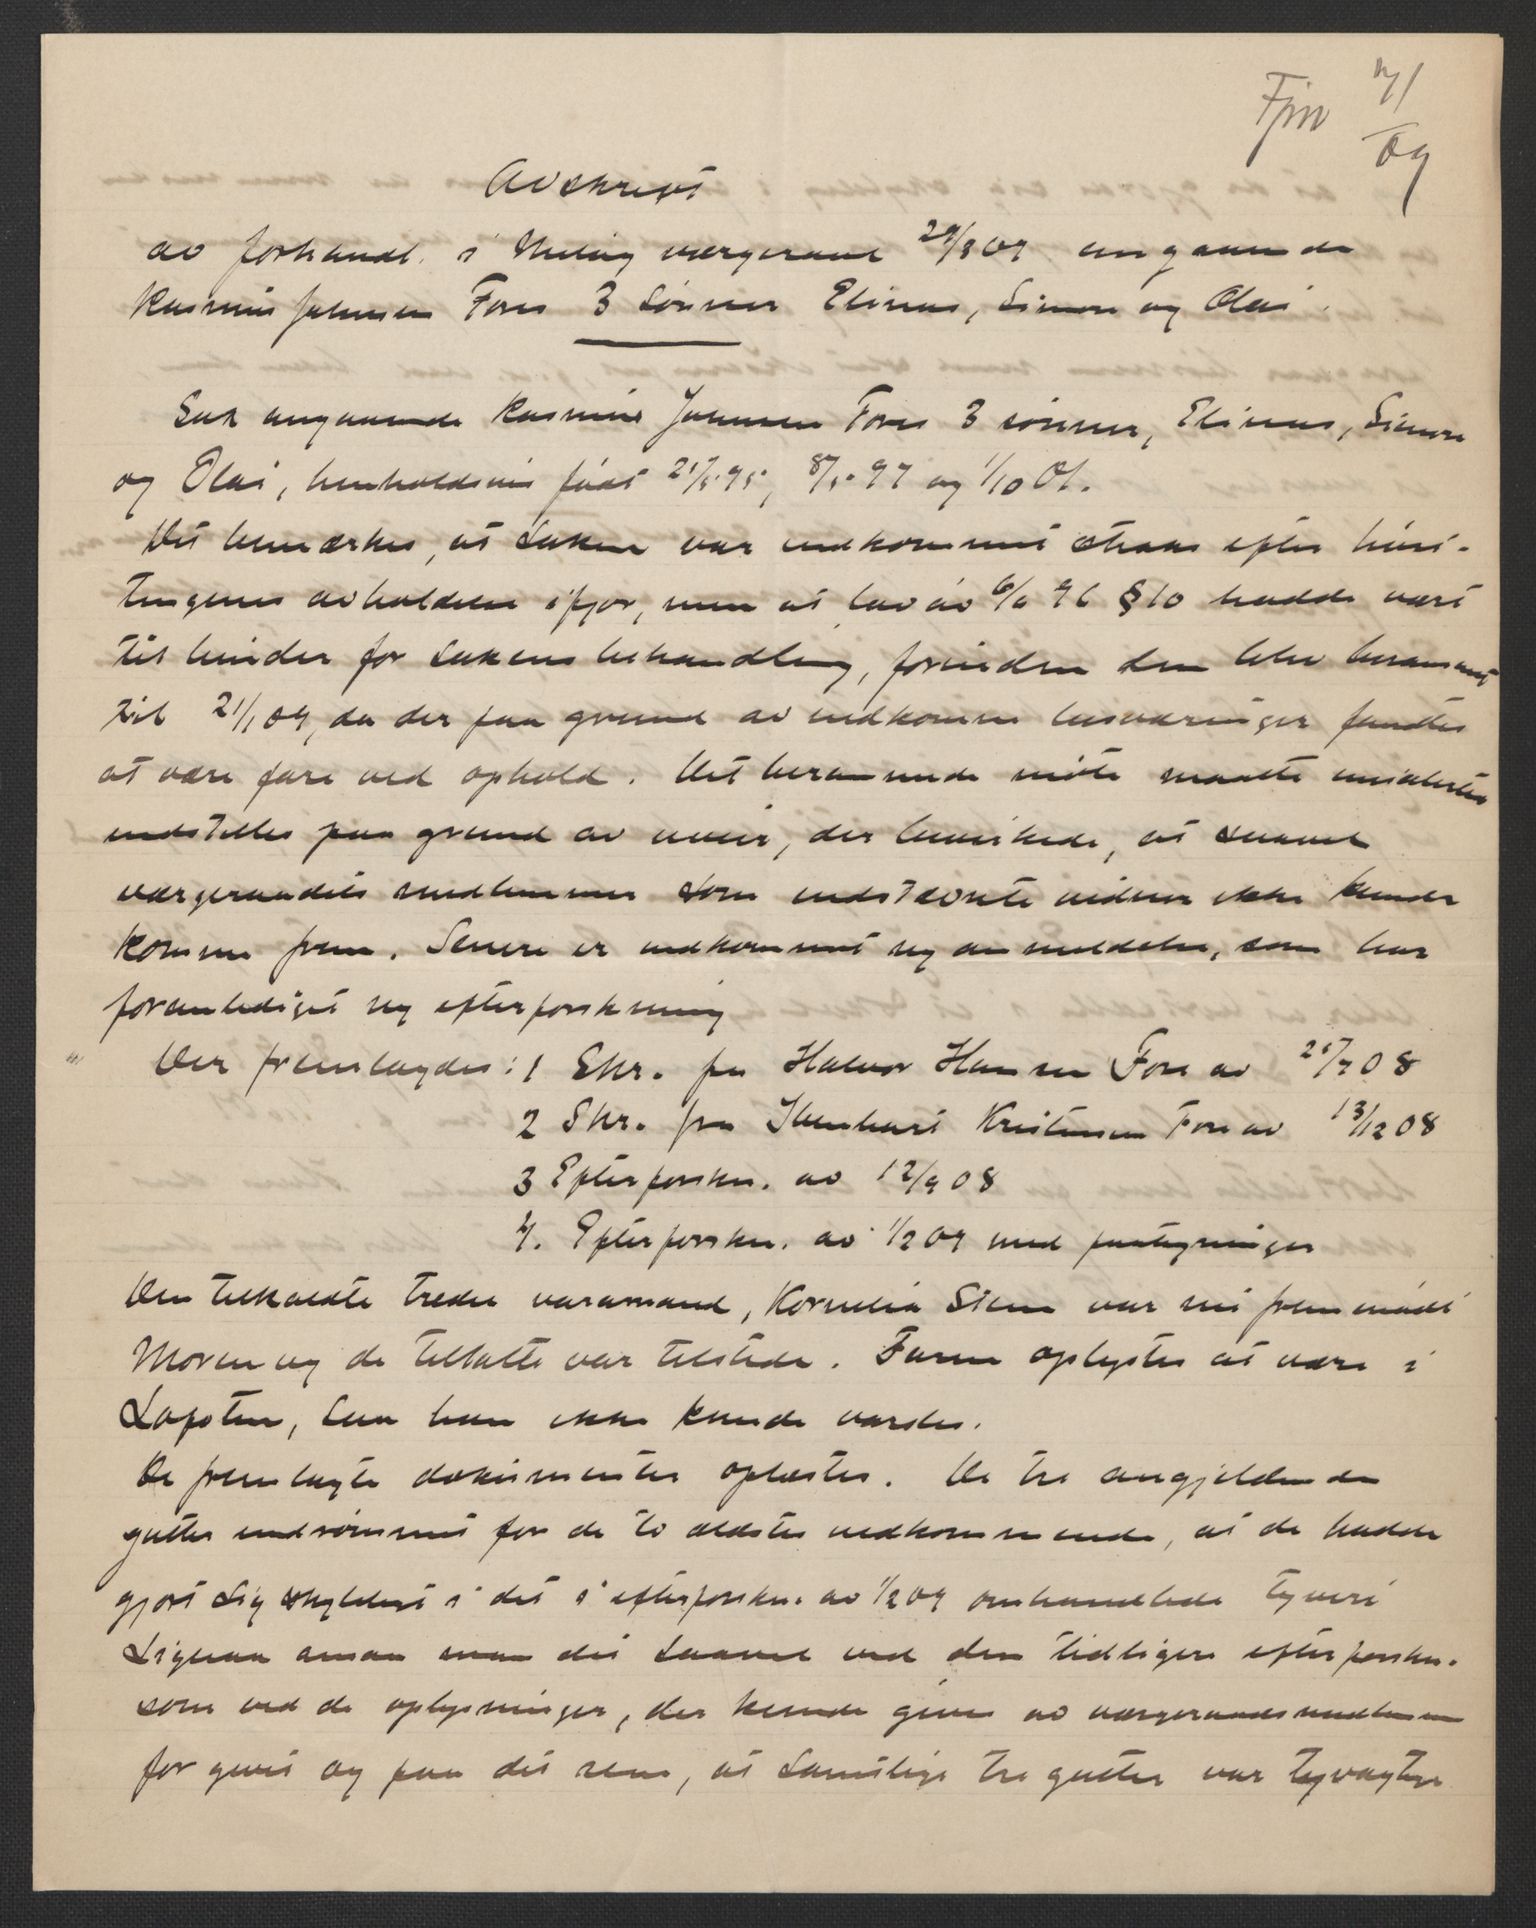 Fjm 14/1 09
Avskrift
av forhandl. i Meløy værgeraad 29/3 09 angaaende
Rasmus Johnsen Fores 3 sønner Elinus, Simon og Olai.
Sak angaaende Rasmus Johnsen Fores 3 sønner, Elinus, Simon
og Olai, henholdsvis født 25/5.95, 8/5.97 og 1/10 01.
Det bemærkes, at saken var indkommet straks efter høst-
tingenes avholdelse ifjor, men at lov av 6/6 96 § 10 hadde vært
til hinder for sakens behandling, forinden den blev berammet
til 21/1 09, da der paa grund av indkomne besværinger fandtes
at være fare ved ophold. Det berammede møte maatte imidlertid
indstilles paa grund av uveir, der bevirkede, at saavel
værgeraadets medlemmer som indstevnte vidner ikke kunde
komme frem. Senere er indkommet ny anmeldelse, som har
foranlediget ny efterforskning
Der fremlagdes: 1 Skr. fra Halvor Hansen Fore av 25/7 08
2 Skr. fra Ibenhart Kristensen Fore av 13/12 08
3 Efterforskn. av 12/9 08
4. Efterforskn. av 1/2 09 med paategninger
Den tilkaldte tredie varamand, Kornelia Steen var nu fremmødt
Moren og de tiltalte var tilstede. Faren oplystes at være i
Lofoten, saa han ikke kunde varsles.
De fremlagte dokumenter oplæstes. De tre angjeldende
gutter indrømmet for de to ældstes vedkommende, at de hadde
gjort sig skyldig i det i efterforskn. av 1/2 09 omhandlede tyveri
Ligesaa ansaa man det saavel ved den tidligere efterforskn.
som ved de oplysninger, der kunde gives av værgeraadsmedlemmer
for givet og paa det rene, at samtlige tre gutter var tyvagtige